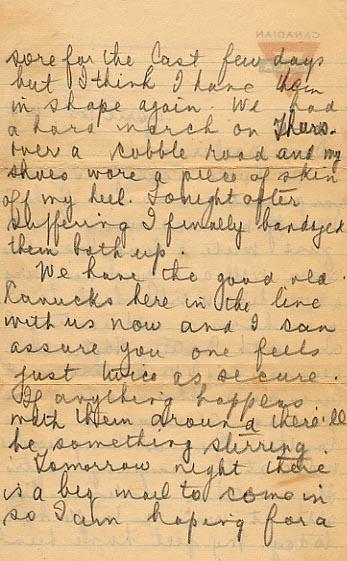 CANADIAN
sore for the last few days
but I think I have them
in shape again. We had
a hard march on Thurs.
over a cobble road and my
shoes wore a piece of skin
off my heel. Tonight after
suffering I finally bandaged
them both up.
We have the good old
Kanucks here in the line
with us now and I can
assure you one feels
just twice as secure.
If anything happens
with them around there'll
be something stirring.
Tomorrow night there
is a big mail to come in
so I am hoping for a